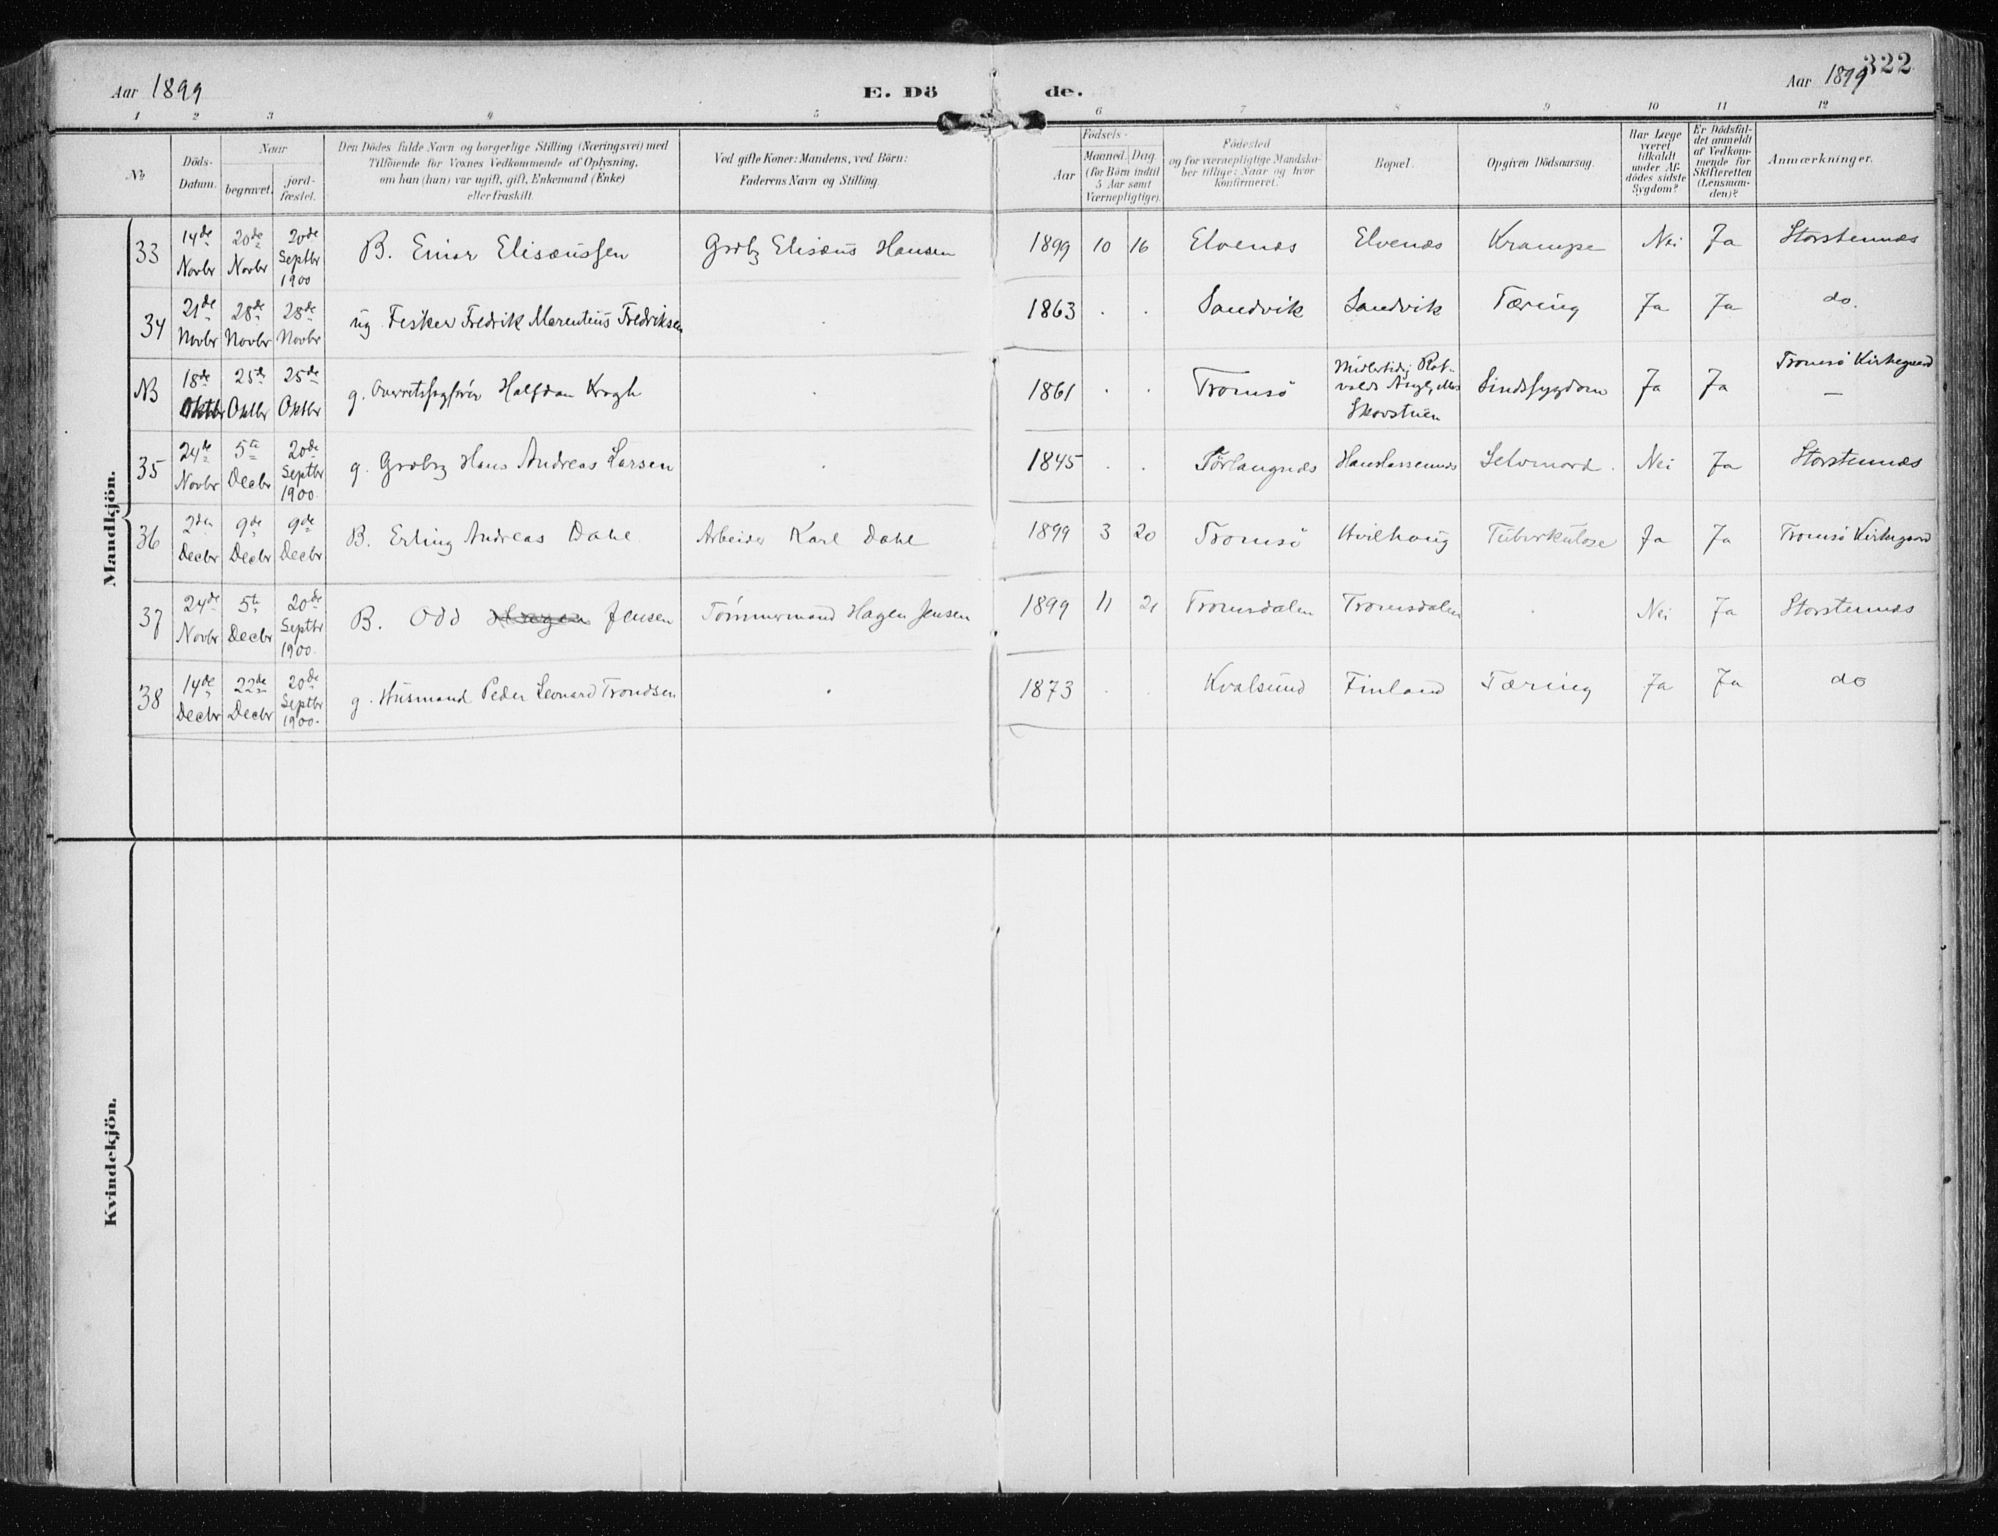 Aar 1899
E. Dö
de.
Aar 1899
322
1 2 3 4 5 6 7 8 9 10 11 12
No
Döds-
Datum.
Naar
begravet.
jord-
fæstet.
Den Dödes fulde Navn og borgerlige Stilling (Næringsvei) med
Tilföiende for Voxnes Vedkommende af Oplysning,
om han (hun) var ugift, gift, Enkemand (Enke)
eller fraskilt.
Ved gifte Koner: Mandens, ved Börn:
Faderens Navn og Stilling.
Födsels-
Aar
Maaned. Dag.
(for Börn indtil
5 Aar samt
Værnepligtige).
Födested
og for værnepligtige Mandska-
ber tillige: Naar og hvor
konfirmeret.
Bopæl.
Opgiven Dödsaarsag.
Har Læge
været
tilkaldt
under Af-
dödes sidste
Sygdom?
Er Dödsfal-
det anmeldt
af Vedkom-
mende for
Skifteretten
(Lensman-
den)?
Anmærkninger.
Mandkjön.
33 14de Novbr 20de Novbr 20de Septbr 1900 B. Einar Elisæussen Grdbr Elisæus Hansen 1899 10 16 Elvenæs Elvenæs Krampe Nei Ja Storstennæs
34 21de Novbr 28de Novbr 28de Novbr ug. Fisker Fredrik Marentius Fredriksen 1863 Sandvik Sandvik Tæring Ja Ja do.
NB 18de Oktbr 25de Oktbr 25de Oktbr g. Overretssagfører Halfdan Krogh 1861 Tromsö Midlertidig Rot-volds Skovstuen Sindssygdom Ja Ja Tromsö Kirkegaard —
35 24de Novbr 5te Decbr 20de Septbr 1900. g. Grdbr Hans Andreas Larsen 1845 Hanslarsennæs Selvmord. Nei Ja Storstennæs
36 2den Decbr 9de Decbr 9de Decbr B. Erling Andreas Dahl Arbeider Karl Dahl 1899 3 20 Tromsö Hvilhaug Tuberkulose Ja Ja Tromsö Kirkegaard
37 24de Novbr 5te Decbr 20de Septbr 1900. B. Odd Hagen Jensen Tømmermand Hagen Jensen 1899 11 21 Tromsdalen Tromsdalen Nei Ja Storstennæs
38 14de Decbr 22de Decbr 20de Septbr 1900. g. Husmand Peder Leonard Trondsen 1873 Kvalsund Finland Tæring Ja Ja do
Kvindekjön.